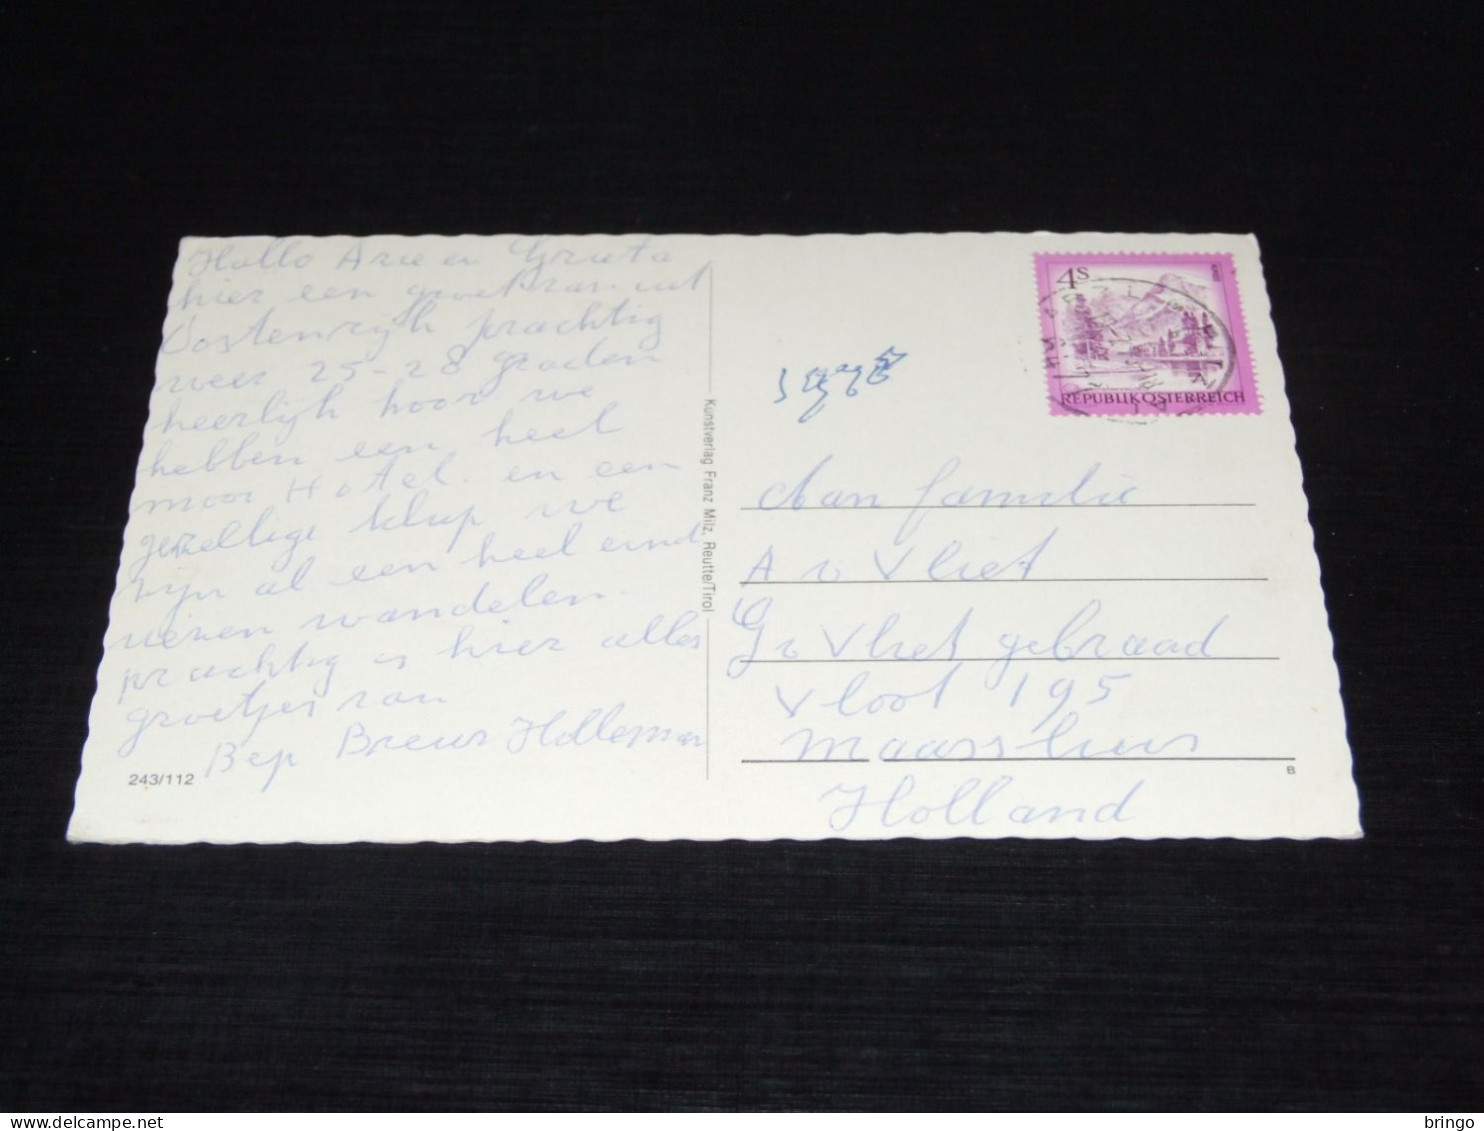 Hallo Arie en Greeta
hier een groet van uit
Oostenrijk prachtig
weer 25-28 graden
heerlijk hoor we
hebben een heel
mooi Hotel. en een
gezellige klup we
zijn al een heel eind
wezen wandelen.
prachtig is hier alles
groetjes van
Bep Breur Holleman
243/112
Kunstverlag Franz Milz, Reutte/Tirol
4S
REPUBLIK ÖSTERREICH
Aan familie
A v Vliet
G v Vliet gebraad
Vloot 195
Maassluis
Holland
B
bringo